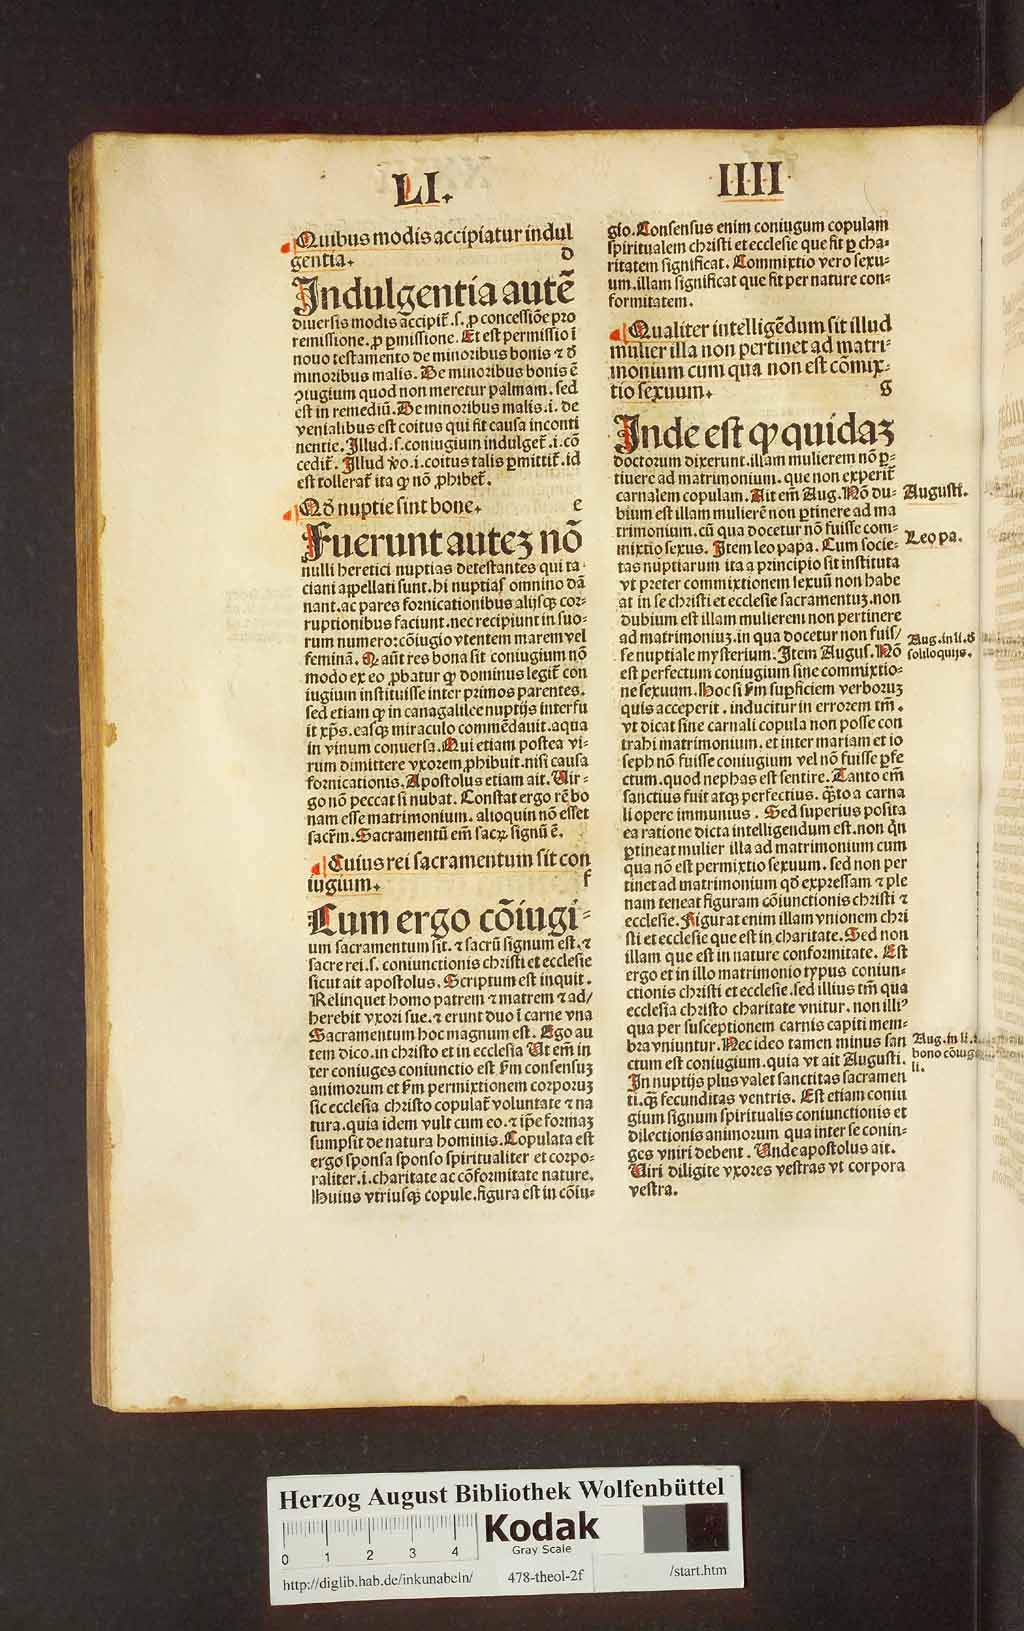 LI.
IIII
Quibus modis accipiatur indul
gentia. D
Indulgentia autẽ
diuersis modis accipit̃.s.ꝓ concessiõe pro
remissione.ꝓ ꝑmissione.Et est permissio ĩ
nouo testamento de minoribus bonis ⁊ đ
minoribus malis. De minoribus bonis ẽ
ↄiugium quod non meretur palmam. sed
est in remediũ. De minoribus malis.i. de
venialibus est coitus qui fit causa inconti
nentie. Illud.s.coniugium indulget̃.i.cõ
cedit̃. Illud ṽo.i.coitus talis ꝑmittit̃.id
est tollerat̃ ita ꝙ nõ ꝓhibet̃.
Qđ nuptie sint bone. e
Fuerunt auteꝫ nõ
nulli heretici nuptias detestantes qui ta-
ciani appellati sunt.hi nuptias omnino dã
nant.ac pares fornicationibus alijsqꝫ cor-
ruptionibus faciunt.nec recipiunt in suo-
rum numero:cõiugio vtentem marem vel
feminã. Q aũt res bona sit coniugium nõ
modo ex eo ꝓbatur ꝙ dominus legit̃ con
iugium instituisse inter primos parentes.
sed etiam ꝙ in canagalilee nuptijs interfu
it xp̃s. easqꝫ miraculo commẽdauit.aqua
in vinum conuersa. Qui etiam postea vi-
rum dimittere vxorem ꝓhibuit.nisi causa
fornicationis. Apostolus etiam ait. Vir-
go nõ peccat si nubat. Constat ergo rẽ bo
nam esse matrimonium. alioquin nõ esset
sacr̃m. Sacramentũ em̃ sacꝝ signũ ẽ.
Cuius rei sacramentum sit con
iugium. f
Cum ergo cõiugi-
um sacramentum sit. ⁊ sacrũ signum est.⁊
sacre rei.s. coniunctionis christi et ecclesie
sicut ait apostolus. Scriptum est inquit.
Relinquet homo patrem ⁊ matrem ⁊ ad/
herebit vxori sue.⁊ erunt duo ĩ carne vna
Sacramentum hoc magnum est. Ego au
tem dico.in christo et in ecclesia Ut em̃ in
ter coniuges coniunctio est ẜm consensuꝫ
animorum et ẜm permixtionem corporuꝫ
sic ecclesia christo copulat̃ voluntate ⁊ na
tura.quia idem vult cum eo.⁊ ip̃e formaꝫ
sumpsit de natura hominis. Copulata est
ergo sponsa sponso spiritualiter et corpo-
raliter.i.charitate ac cõformitate nature.
Huius vtriusqꝫ copule.figura est in cõiu-
gio. Consensus enim coniugum copulam
spiritualem christi et ecclesie que fit ꝑ cha-
ritatem significat. Commixtio vero sexu-
um.illam significat que fit per nature con-
formitatem.
Qualiter intelligẽdum sit illud
mulier illa non pertinet ad matri-
monium cum qua non est cõmix-
tio sexuum. g
Inde est ꝙ quidaꝫ
doctorum dixerunt.illam mulierem nõ ꝑ-
tinere ad matrimonium. que non experit̃
carnalem copulam. Ait em̃ Aug. Nõ du-
bium est illam mulierẽ non ꝑtinere ad ma
trimonium. cũ qua docetur nõ fuisse com-
mixtio sexus. Item leo papa. Cum socie-
tas nuptiarum ita a principio sit instituta
vt preter commixtionem sexuũ non habe
at in se christi et ecclesie sacramentuꝫ.non
dubium est illam mulierem non pertinere
ad matrimoniuꝫ.in qua docetur non fuis/
se nuptiale mysterium. Item Augus. Nõ
est perfectum coniugium sine commixtio-
ne sexuum. Hoc si ẜm suꝑficiem verboruꝫ
quis acceperit . inducitur in errorem tm̃.
vt dicat sine carnali copula non posse con
trahi matrimonium. et inter mariam et io
seph nõ fuisse coniugium vel nõ fuisse ꝑfe
ctum.quod nephas est sentire. Tanto em̃
sanctius fuit atqꝫ perfectius. q̃sto a carna
li opere immunius . Sed superius posita
ea ratione dicta intelligendum est.non qn̄
ꝑtineat mulier illa ad matrimonium cum
qua nõ est permixtio sexuum. sed non per
tinet ad matrimonium qđ expressam ⁊ ple
nam teneat figuram cõiunctionis christi ⁊
ecclesie. Figurat enim illam vnionem chri
sti et ecclesie que est in charitate. Sed non
illam que est in nature conformitate. Est
ergo et in illo matrimonio typus coniun-
ctionis christi et ecclesie.sed illius tm̃ qua
ecclesia christo charitate vnitur. non illiꝰ
qua per susceptionem carnis capiti mem-
bra vniuntur. Nec ideo tamen minus san
ctum est coniugium.quia vt ait Augusti.
In nuptijs plus valet sanctitas sacramen
ti.q̃ꝫ fecunditas ventris. Est etiam coniu
gium signum spiritualis coniunctionis et
dilectionis animorum qua inter se coniu-
ges vniri debent. Unde apostolus ait.
Viri diligite vxores vestras vt corpora
vestra.
Augusti.
Leo pa.
Aug.in li.đ
soliloquijs.
Aug.in li.
bono cõiug
li.
Herzog August Bibliothek Wolfenbüttel
0 1 2 3 4
Kodak
Gray Scale
http://diglib.hab.de/inkunabeln/ 478-theol-2f /start.htm